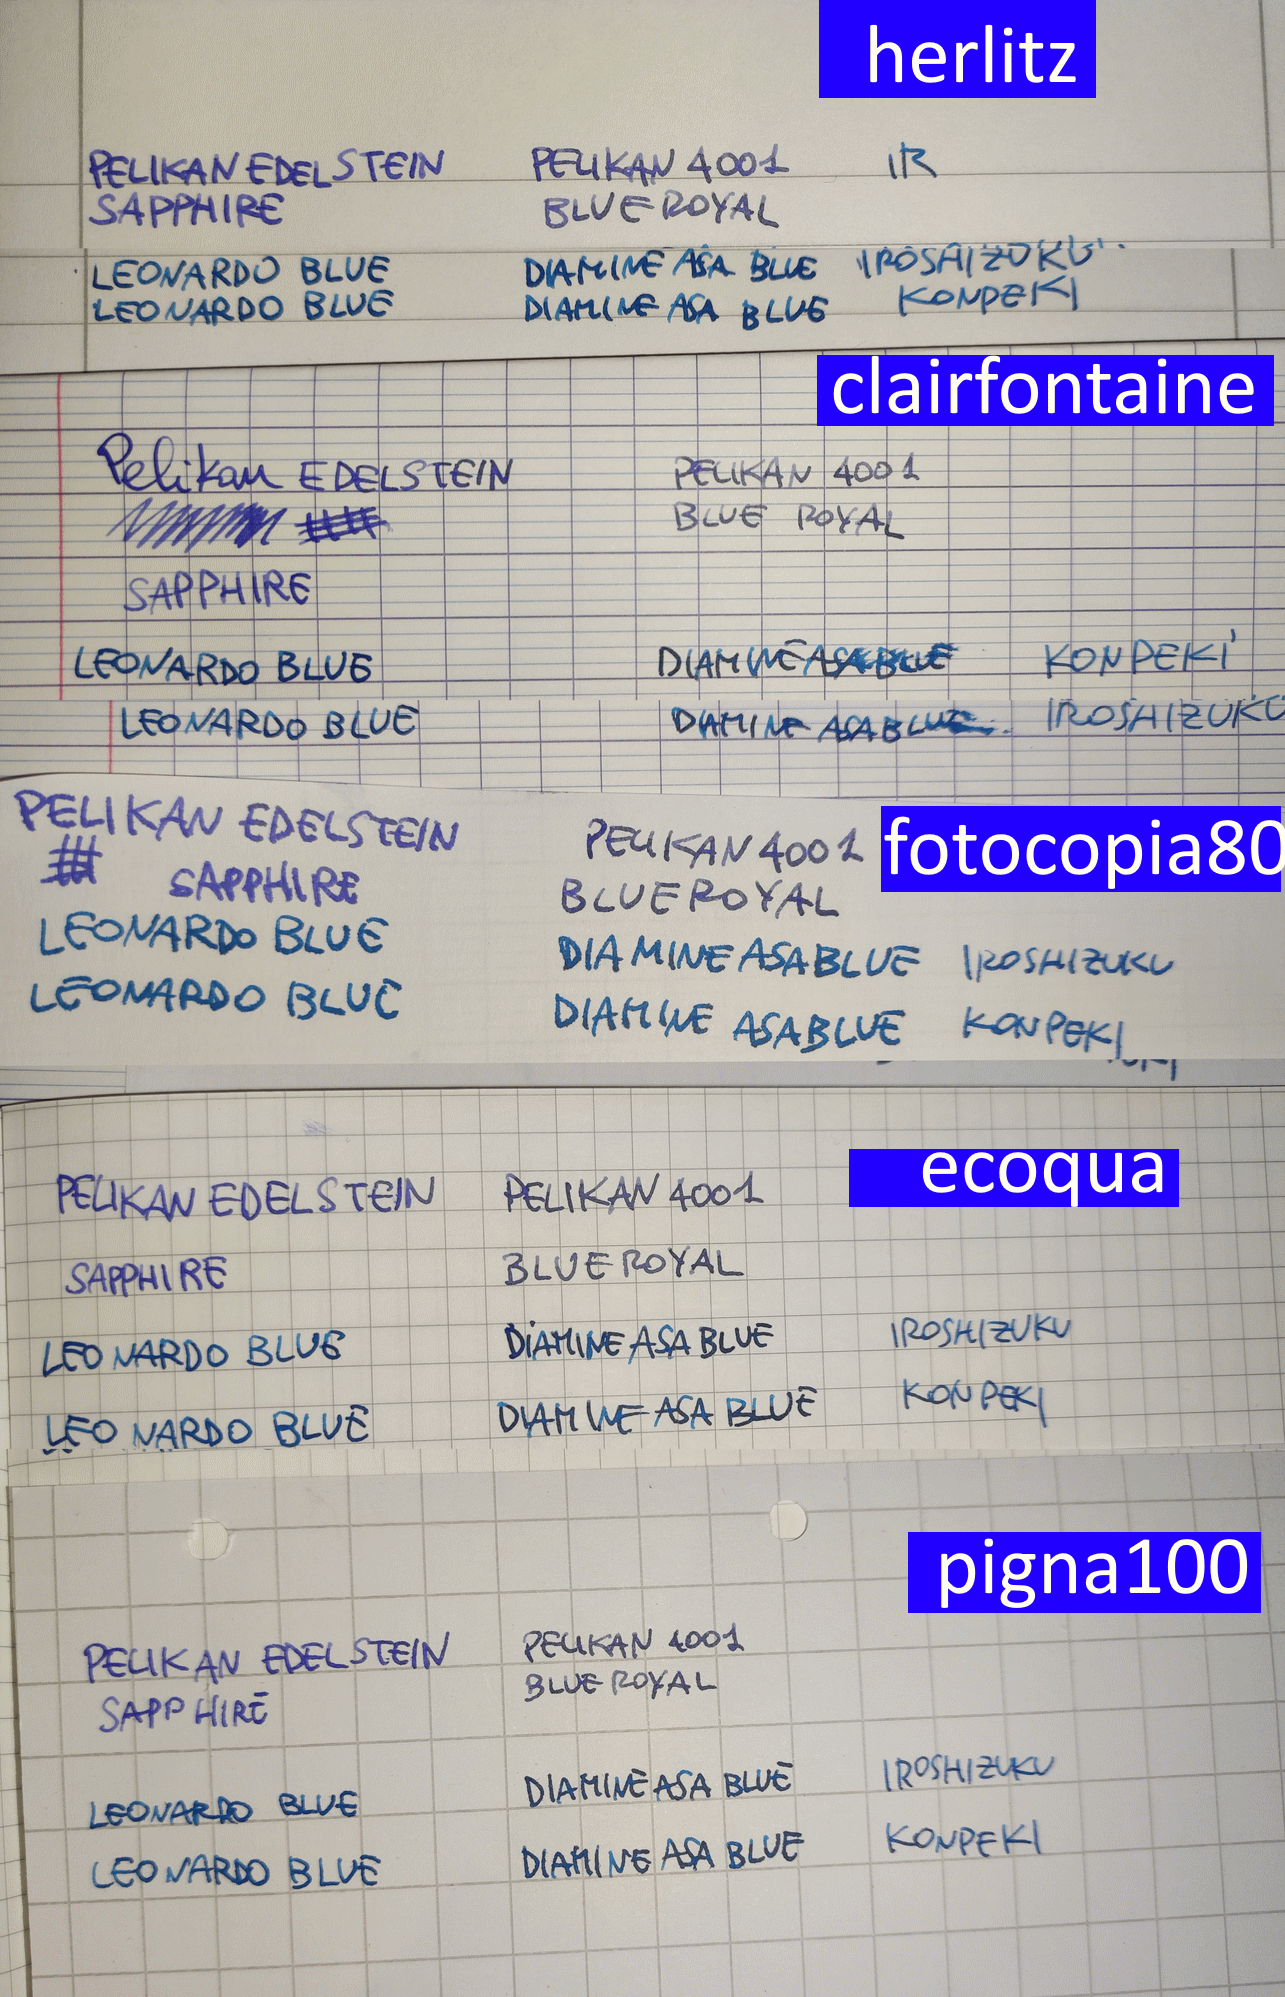 herlitz
PELIKAN EDELSTEIN PELIKAN 4001 IR
SAPPHIRE BLUE ROYAL
LEONARDO BLUE DIAMINE ASA BLUE IROSHIZUKU
LEONARDO BLUE DIAMINE ASA BLUE KONPEKI
clairfontaine
Pelikan EDELSTEIN PELIKAN 4001
BLUE ROYAL
SAPPHIRE
LEONARDO BLUE DIAMINE ASA BLUE KONPEKI
LEONARDO BLUE DIAMINE ASA BLUE IROSHIZUKU
PELIKAN EDELSTEIN PELIKAN 4001 fotocopia80
SAPPHIRE BLUE ROYAL
LEONARDO BLUE DIAMINE ASA BLUE IROSHIZUKU
LEONARDO BLUE DIAMINE ASA BLUE KONPEKI
ecoqua
PELIKAN EDELSTEIN PELIKAN 4001
SAPPHIRE BLUE ROYAL
LEONARDO BLUE DIAMINE ASA BLUE IROSHIZUKU
LEONARDO BLUE DIAMINE ASA BLUE KONPEKI
pigna100
PELIKAN EDELSTEIN PELIKAN 4001
SAPPHIRE BLUE ROYAL
LEONARDO BLUE DIAMINE ASA BLUE IROSHIZUKU
LEONARDO BLUE DIAMINE ASA BLUE KONPEKI